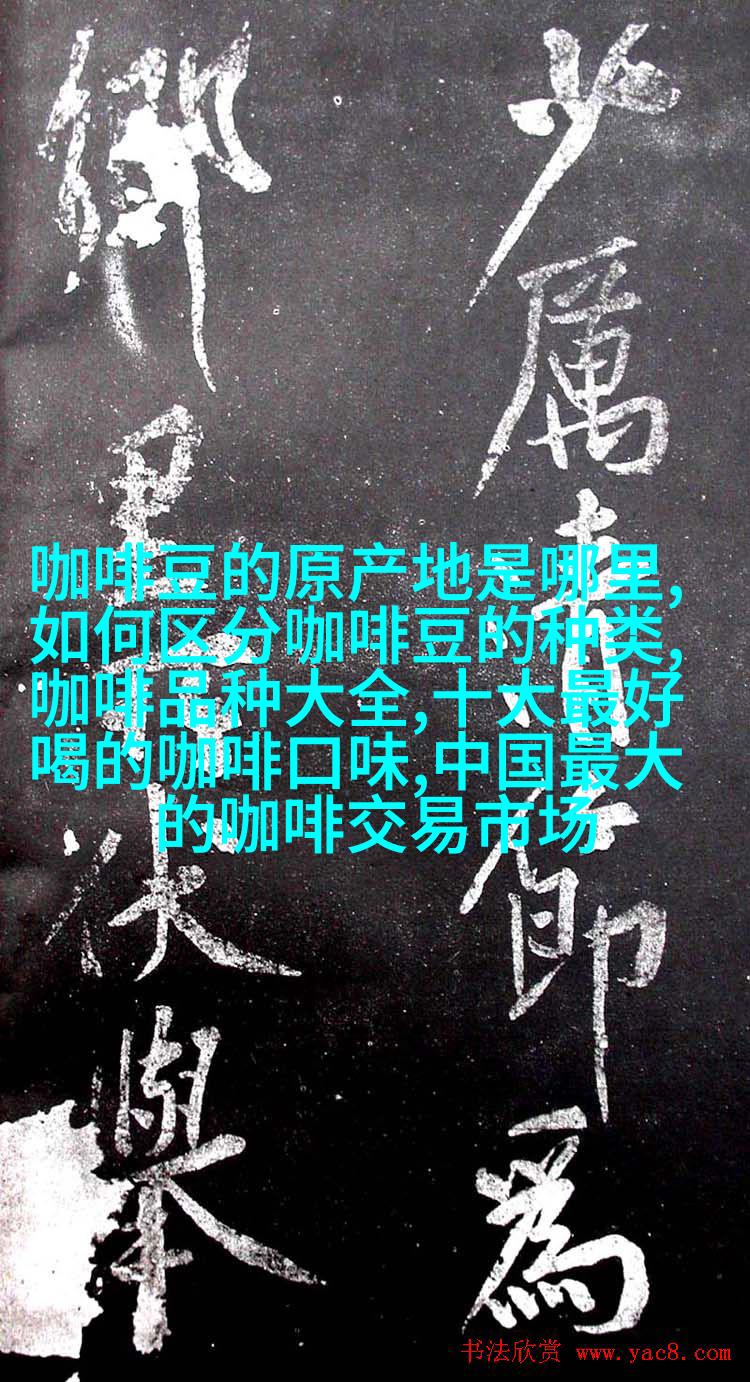 少厲清節為
鄉里伏舉
咖啡豆的原产地是哪里,
如何区分咖啡豆的种类,
咖啡品种大全,十大最好
喝的咖啡口味,中国最大
的咖啡交易市场
书法欣赏 www.yac8.com